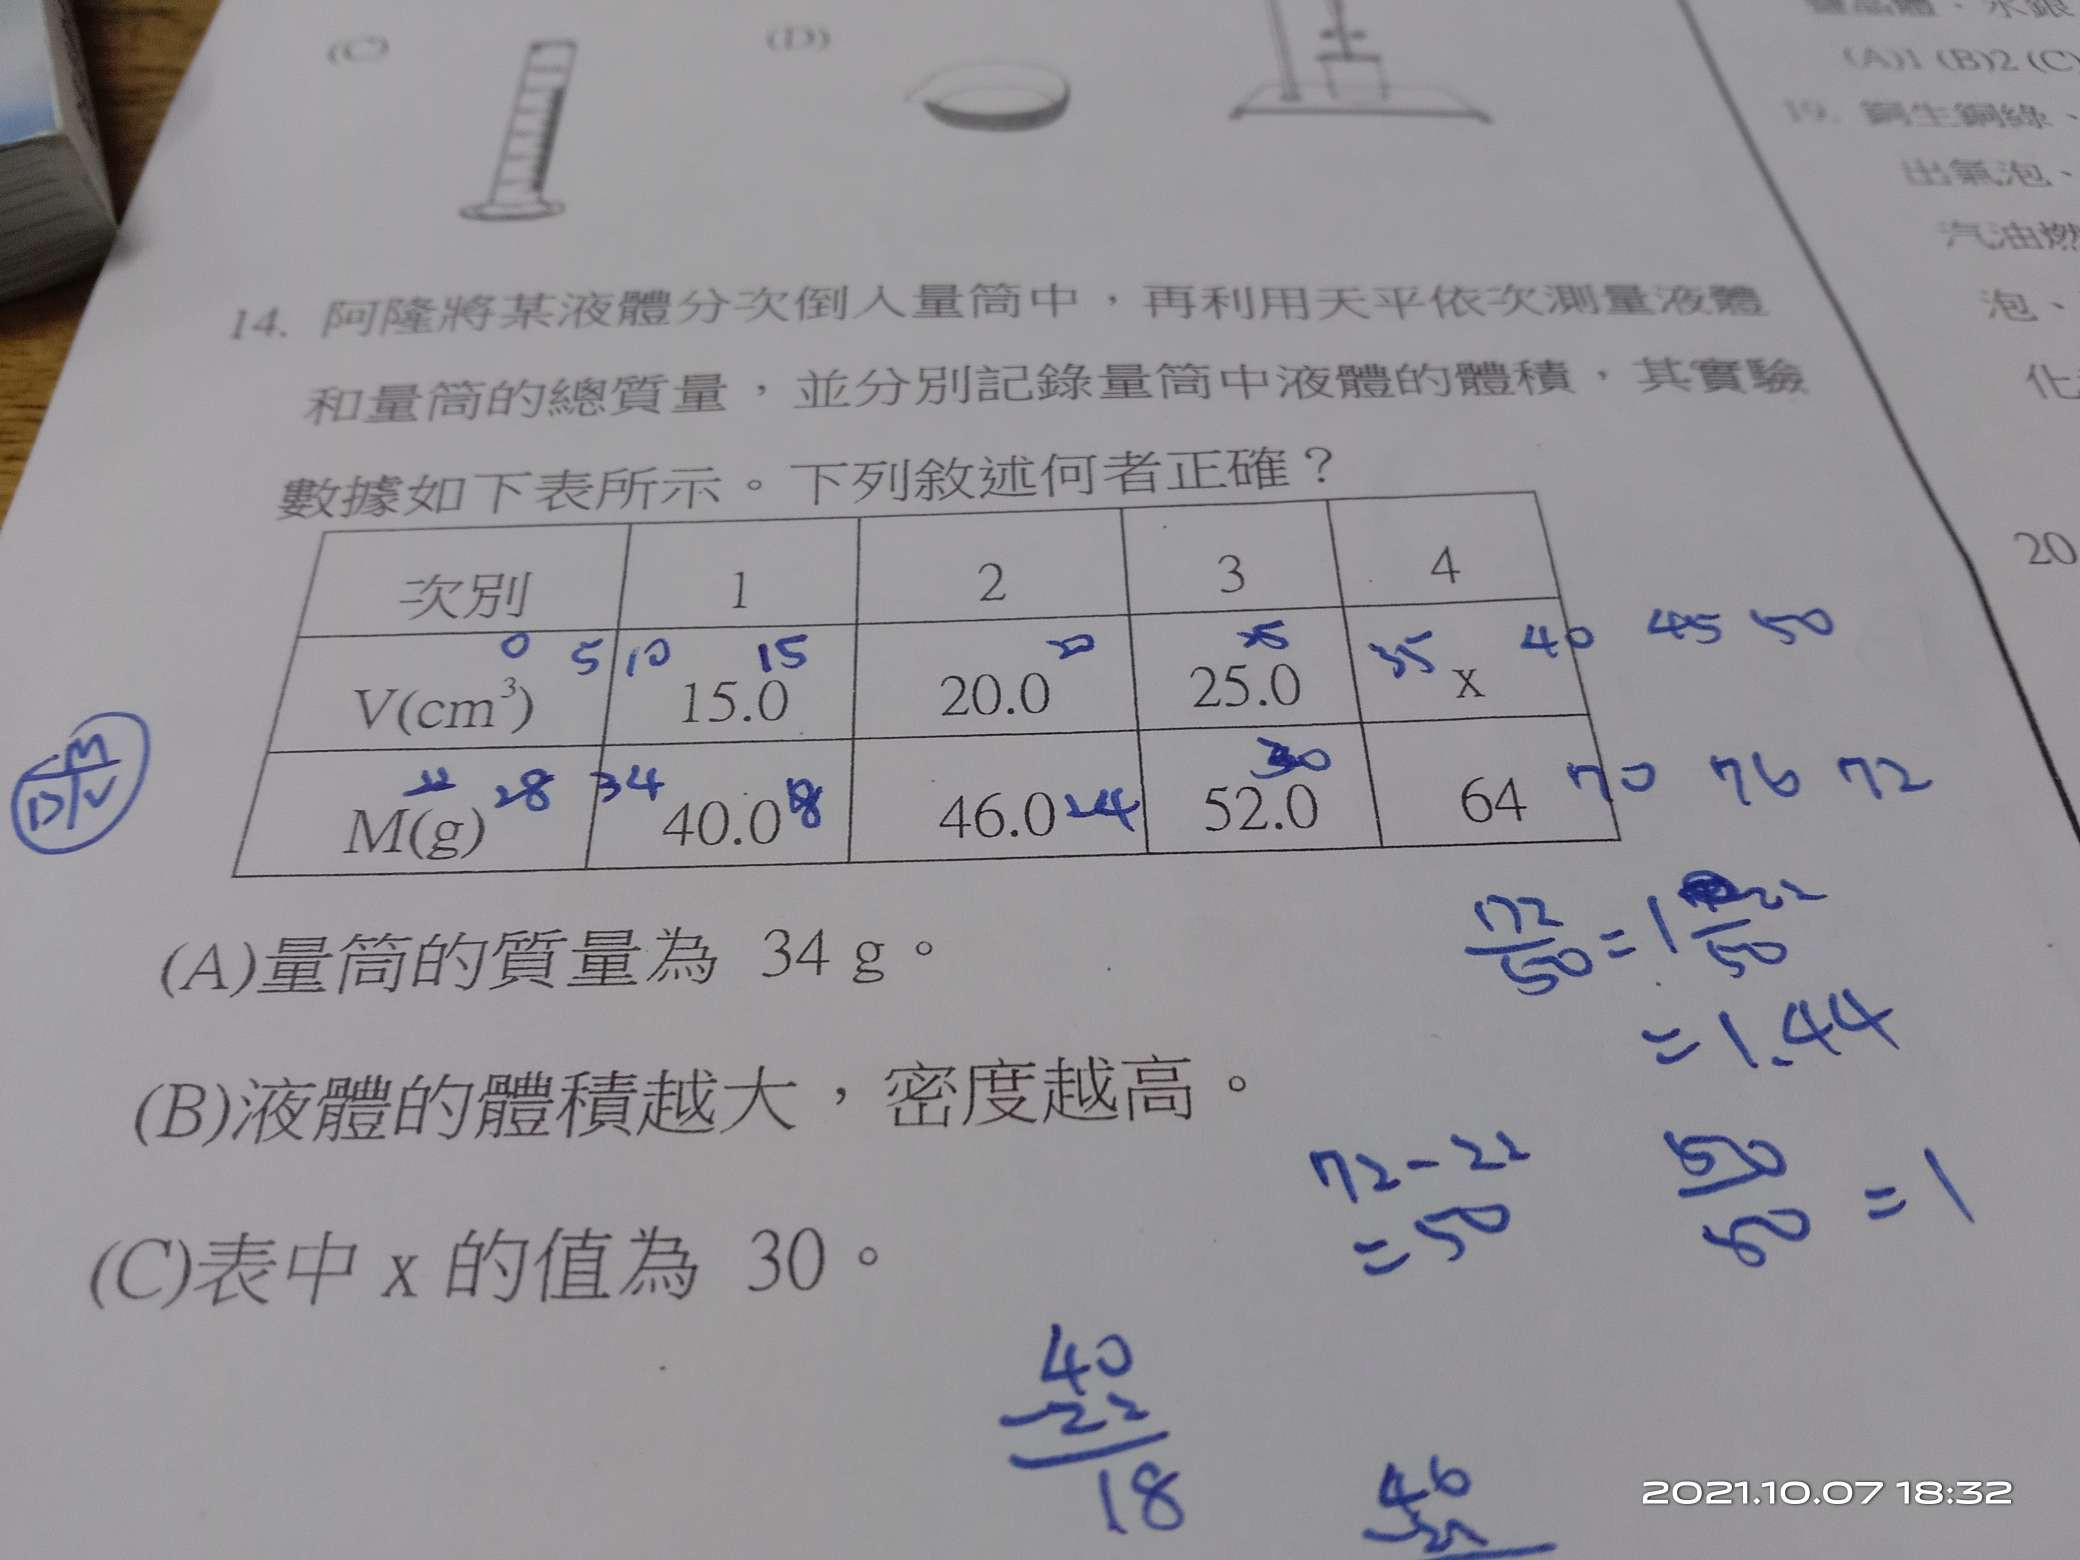 (C)
(D)
(A)1 (B)2 (C)
19. 銅生銅綠、
出氣泡、
汽油燃
泡、
化
20
14. 阿隆將某液體分次倒入量筒中，再利用天平依次測量液體
和量筒的總質量，並分別記錄量筒中液體的體積，其實驗
數據如下表所示。下列敘述何者正確？
次別 1 2 3 4
0 5 10 15 20 25 35 40 45 50
V(cm³) 15.0 20.0 25.0 x
22 28 34 18 24 30 70 76 72
M(g) 40.0 46.0 52.0 64
M
D V
(A)量筒的質量為 34 g。
172/50 = 1 22/50
= 1.44
(B)液體的體積越大，密度越高。
72-22
= 50
50/50 = 1
(C)表中 x 的值為 30。
40
-22
18
46
-22
2021.10.07 18:32